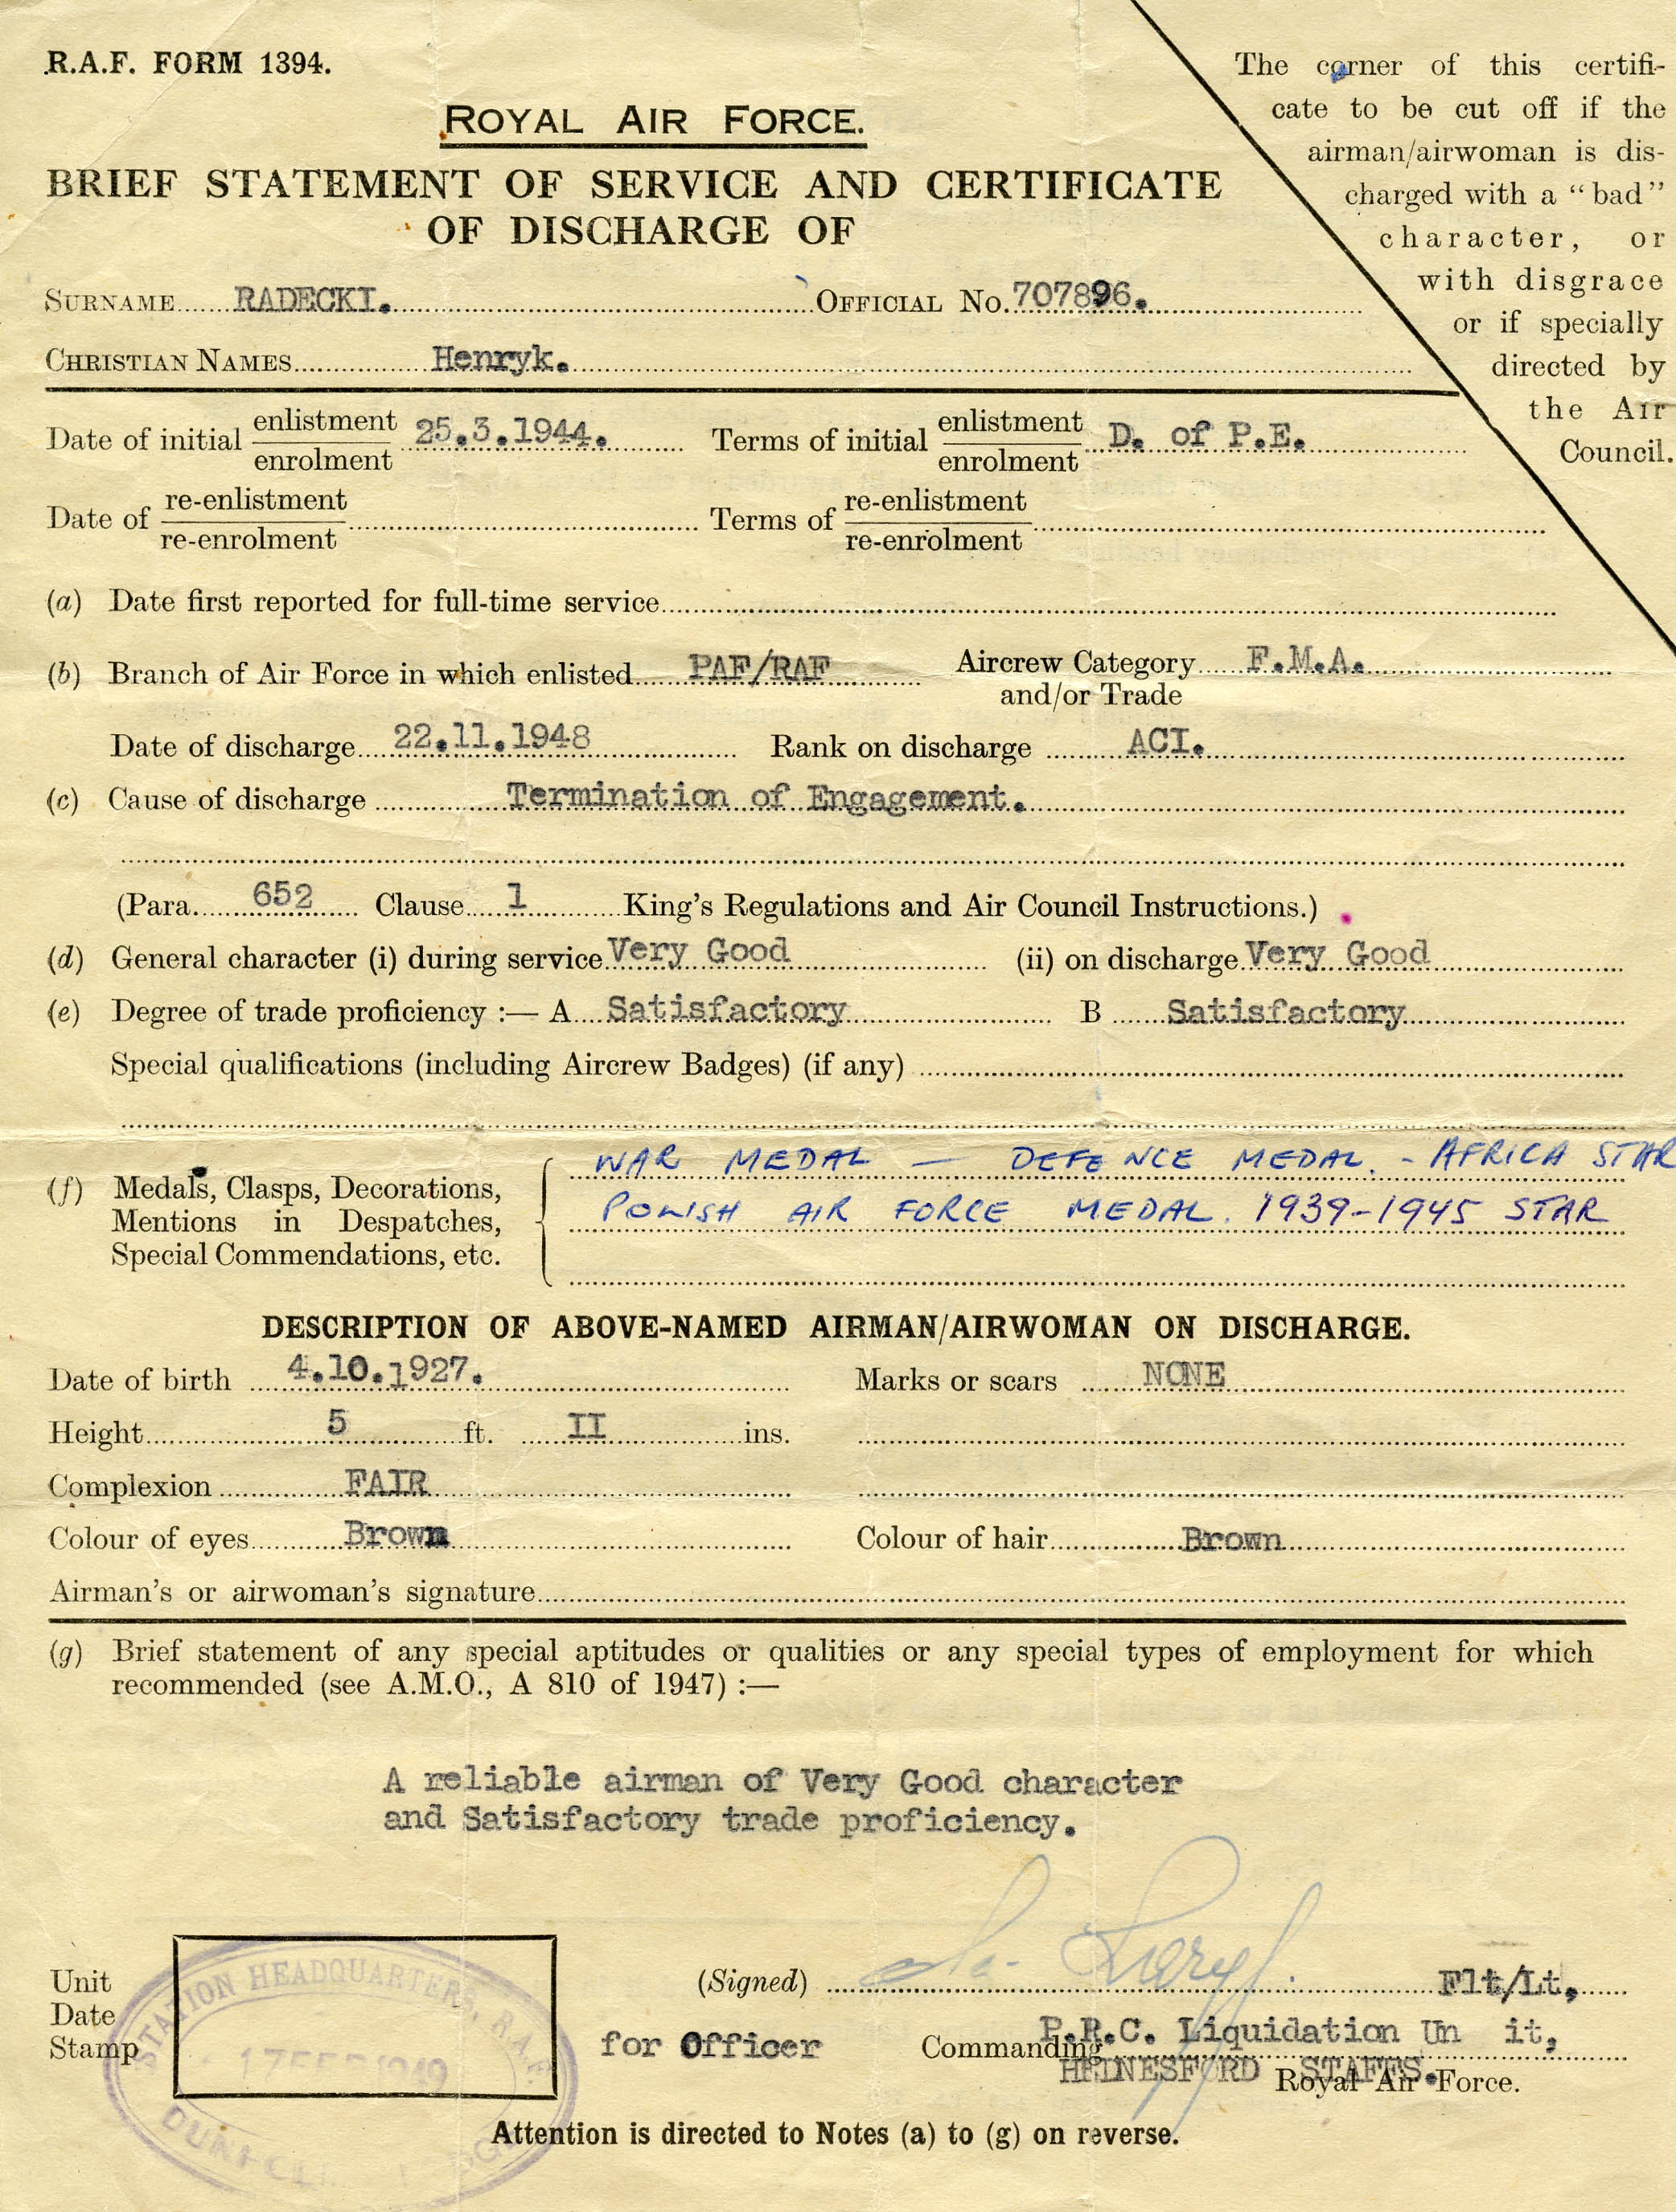 R.A.F. FORM 1394.
The corner of this certifi-
cate to be cut off if the
airman/airwoman is dis-
charged with a "bad"
character, or
with disgrace
or if specially
directed by
the Air
Council.
ROYAL AIR FORCE.
BRIEF STATEMENT OF SERVICE AND CERTIFICATE
OF DISCHARGE OF
SURNAME RADECKI. OFFICIAL NO. 707896.
CHRISTIAN NAMES Henryk.
Date of initial enlistment/enrolment 25.3.1944. Terms of initial enlistment/enrolment D. of P.E.
Date of re-enlistment/re-enrolment Terms of re-enlistment/re-enrolment
(a) Date first reported for full-time service
(b) Branch of Air Force in which enlisted PAF/RAF Aircrew Category F.M.A.
and/or Trade
Date of discharge 22.11.1948 Rank on discharge ACI.
(c) Cause of discharge Termination of Engagement.
(Para. 652 Clause 1 King's Regulations and Air Council Instructions.)
(d) General character (i) during service Very Good (ii) on discharge Very Good
(e) Degree of trade proficiency :— A Satisfactory B Satisfactory
Special qualifications (including Aircrew Badges) (if any)
WAR MEDAL — DEFENCE MEDAL. - AFRICA STAR
(f) Medals, Clasps, Decorations,
POLISH AIR FORCE MEDAL. 1939-1945 STAR
Mentions in Despatches,
Special Commendations, etc.
DESCRIPTION OF ABOVE-NAMED AIRMAN/AIRWOMAN ON DISCHARGE.
Date of birth 4.10.1927. Marks or scars NONE
Height 5 ft. II ins.
Complexion FAIR
Colour of eyes Brown Colour of hair Brown
Airman's or airwoman's signature
(g) Brief statement of any special aptitudes or qualities or any special types of employment for which
recommended (see A.M.O., A 810 of 1947) :—
A reliable airman of Very Good character
and Satisfactory trade proficiency.
Unit
Date
Stamp
STATION HEADQUARTERS, R.A.F.
17 FEB 1949
(Signed) Flt/Lt,
for Officer Commanding P.R.C. Liquidation Un it,
HEDNESFORD STAFFS. Royal Air Force.
Attention is directed to Notes (a) to (g) on reverse.